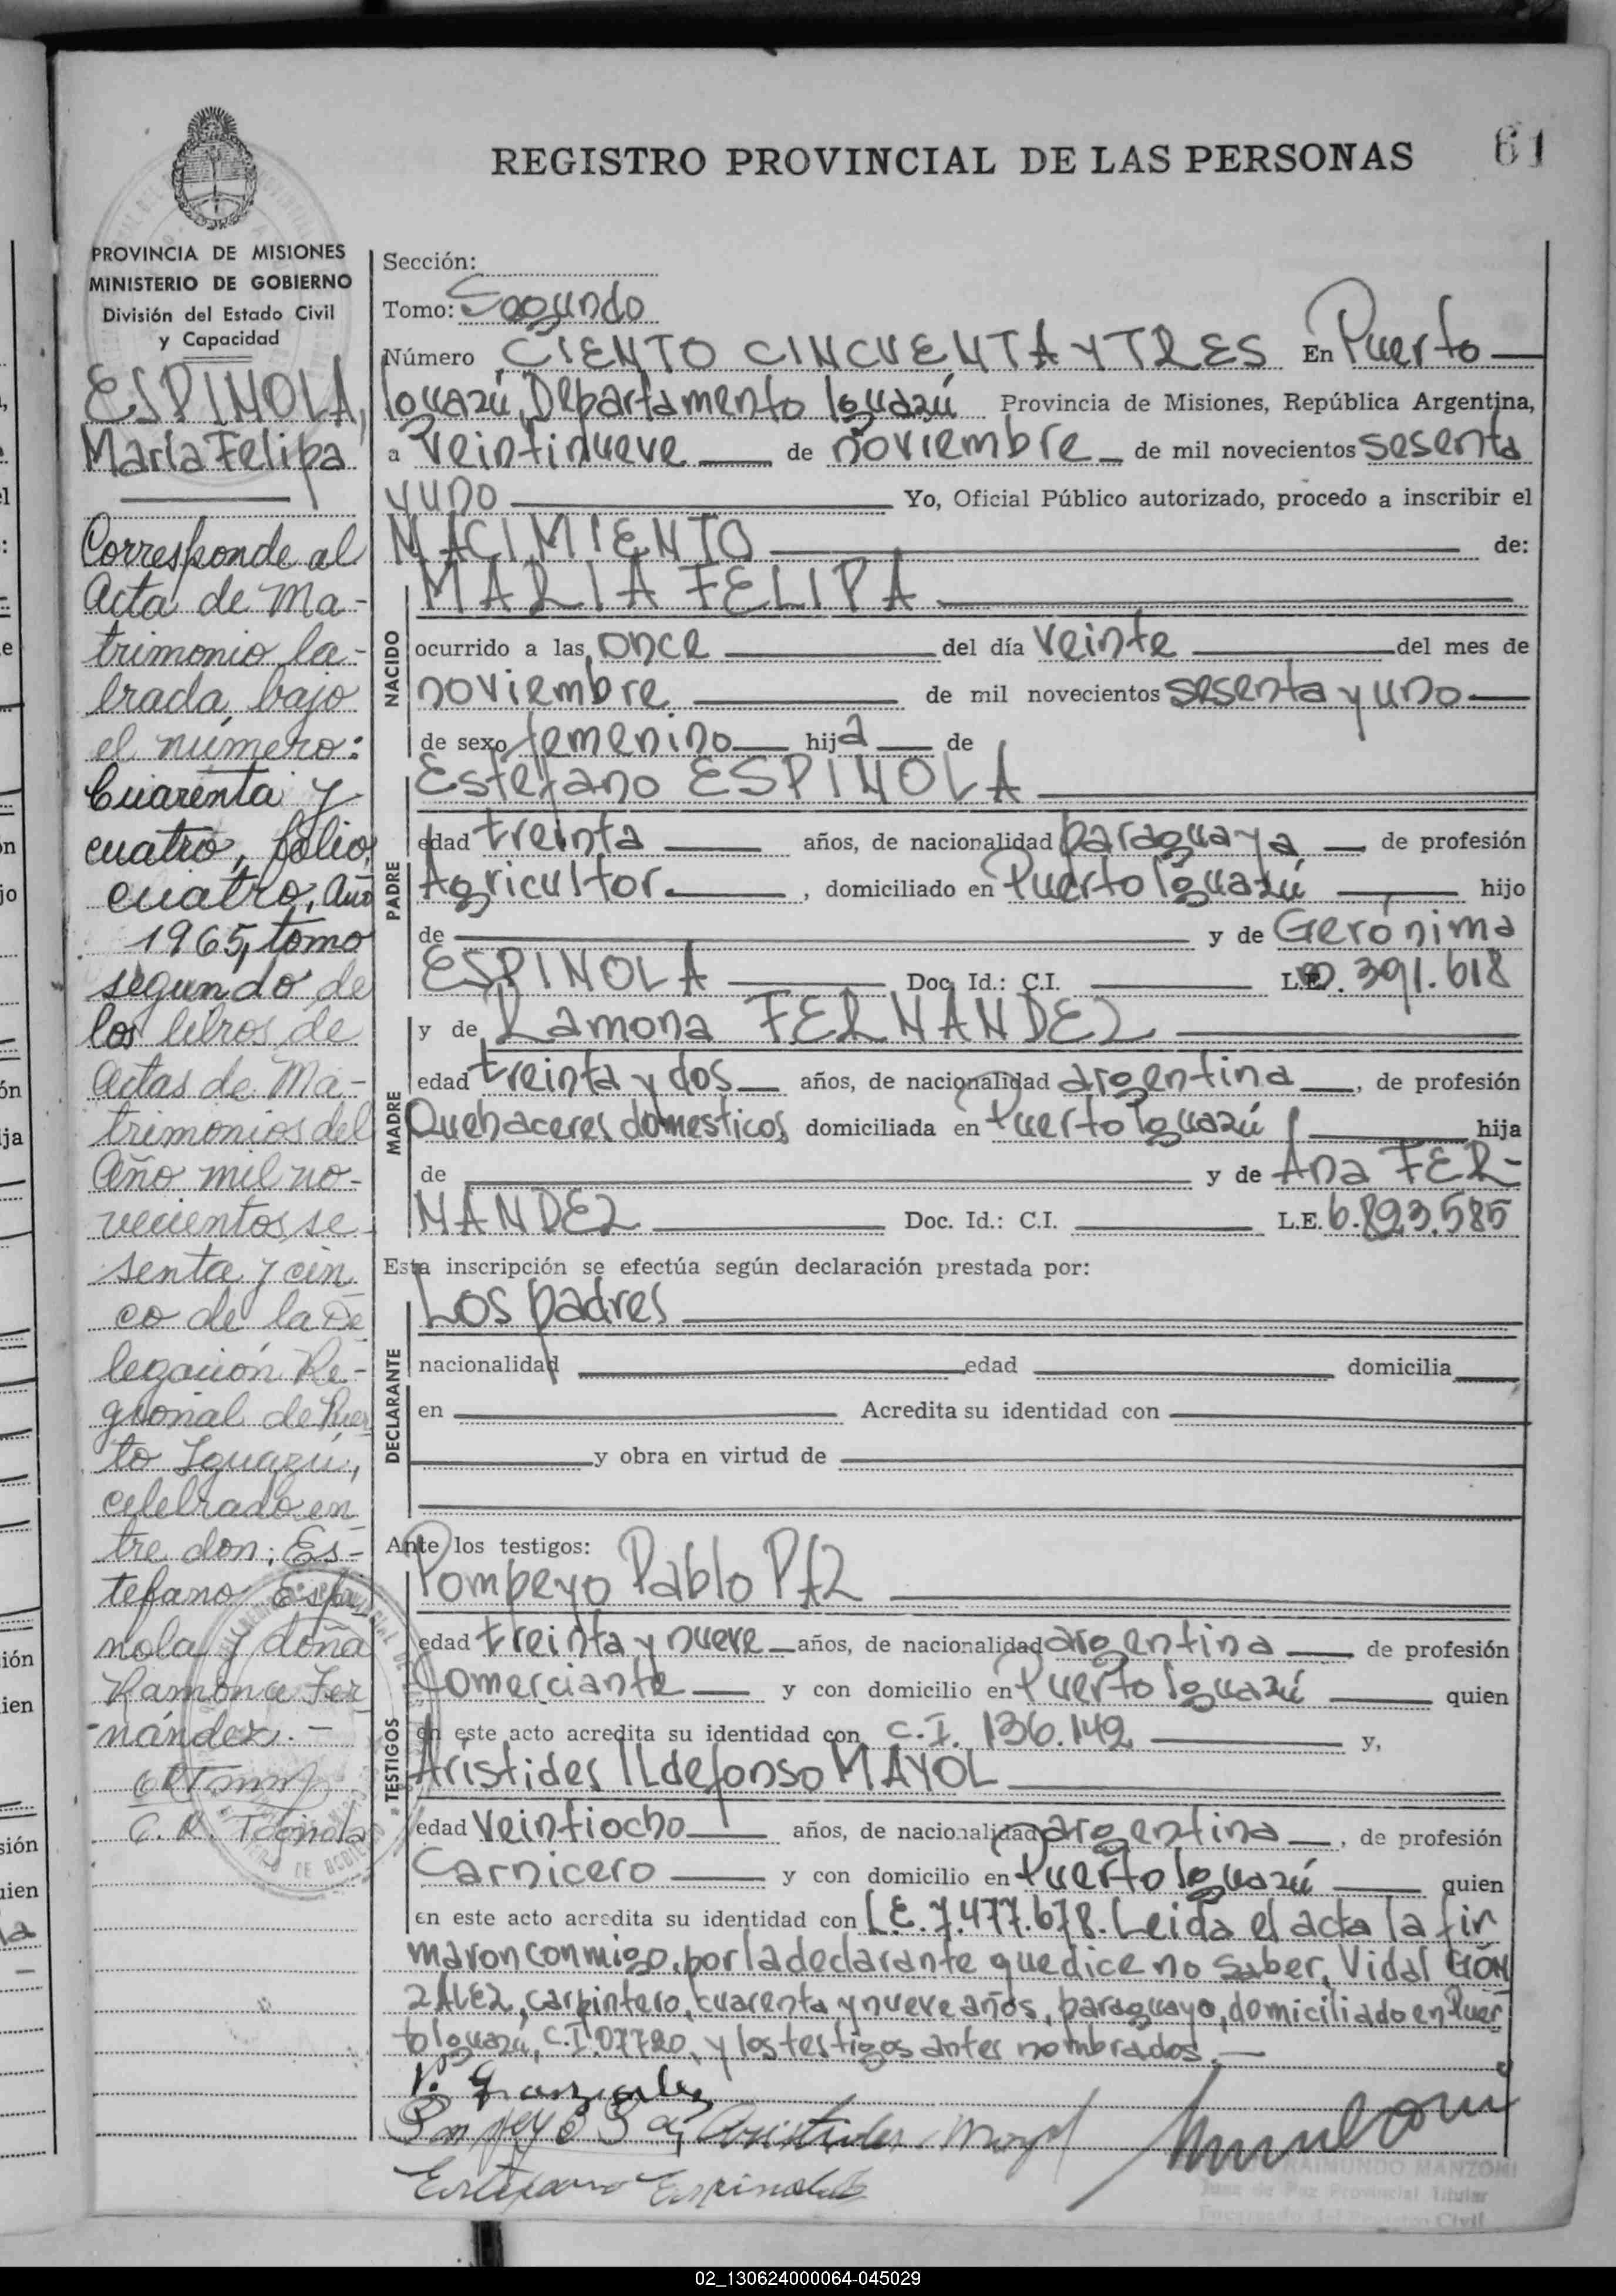 REGISTRO PROVINCIAL DE LAS PERSONAS
61
PROVINCIA DE MISIONES
MINISTERIO DE GOBIERNO
División del Estado Civil
y Capacidad
ESPINOLA,
María Felipa
Corresponde al
Acta de Ma-
trimonio la-
brada bajo
el número:
Cuarenta y
cuatro, folio,
cuatro, Año
1965, tomo
segundo de
los libros de
Actas de Ma-
trimonios del
Año mil no-
vecientos se
senta y cin
co de la De
legación Re-
gional de Puer
to Iguazú,
celebrado en
tre don: Es-
tefano Espi
nola y doña
Ramona Fer
nández. -
Sección:
Tomo: Segundo
Número CIENTO CINCUENTA Y TRES En Puerto
Iguazú, Departamento Iguazú Provincia de Misiones, República Argentina,
a veintinueve de noviembre de mil novecientos sesenta
y uno Yo, Oficial Público autorizado, procedo a inscribir el
NACIMIENTO de:
NACIDO
MARIA FELIPA
ocurrido a las once del día veinte del mes de
noviembre de mil novecientos sesenta y uno
de sexo femenino hija de
PADRE
Estefano ESPINOLA
edad treinta años, de nacionalidad paraguaya de profesión
Agricultor. , domiciliado en Puerto Iguazú hijo
de y de Gerónima
ESPINOLA Doc. Id.: C.I. L.E. 391.618
MADRE
y de Ramona FERNANDEZ
edad treinta y dos años, de nacionalidad argentina , de profesión
Quehaceres domesticos domiciliada en Puerto Iguazú hija
de y de Ana FER-
NANDEZ Doc. Id.: C.I. L.E. 6.893.585
Esta inscripción se efectúa según declaración prestada por:
DECLARANTE
Los padres
nacionalidad edad domicilia
en Acredita su identidad con
y obra en virtud de
Ante los testigos:
TESTIGOS
Pompeyo Pablo PAZ
edad treinta y nueve años, de nacionalidad argentina de profesión
Comerciante y con domicilio en Puerto Iguazú quien
en este acto acredita su identidad con C.I. 136.149 y,
Arístides Ildefonso MAYOL
edad Veintiocho años, de nacionalidad argentina , de profesión
Carnicero y con domicilio en Puerto Iguazú quien
en este acto acredita su identidad con L.E. 7.477.678. Leida el acta la fir
maron conmigo, por la declarante que dice no saber, Vidal GON
ZALEZ, carpintero, cuarenta y nueve años, paraguayo, domiciliado en Puer
to Iguazú, C.I. 07720, y los testigos antes nombrados.-
V. Gonzalez
Pompeyo Paz Aristides Mayol
Estefano Espinola
RAIMUNDO MANZONI
Juez de Paz Provincial Titular
Encargado del Registro Civil
02_130624000064-045029